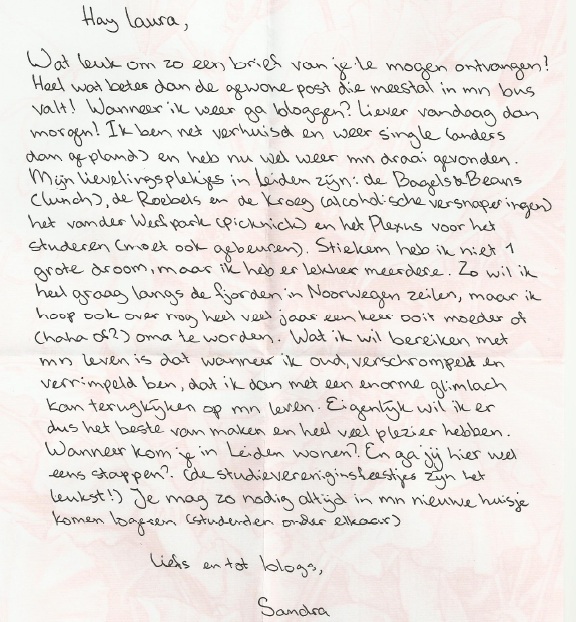 Hay Laura,
Wat leuk om zo een brief van je te mogen ontvangen!
Heel wat beter dan de gewone post die meestal in mn bus
valt! Wanneer ik weer ga bloggen? Liever vandaag dan
morgen! Ik ben net verhuisd en weer single (anders
dan gepland) en heb nu wel weer mn draai gevonden.
Mijn lievelingsplekjes in Leiden zijn: de Bagels&Beans
(lunch), de Roebels en de Kroeg (alcoholische versnaperingen)
het vander Werfpark (picknick) en het Plexus voor het
studeren (moet ook gebeuren). Stiekem heb ik niet 1
grote droom, maar ik heb er lekker meerdere. Zo wil ik
heel graag langs de fjorden in Noorwegen zeilen, maar ik
hoop ook over nog heel veel jaar een keer ooit moeder of
(haha of?) oma te worden. Wat ik wil bereiken met
mn leven is dat wanneer ik oud, verschrompeld en
verrimpeld ben, dat ik dan met een enorme glimlach
kan terugkijken op mn leven. Eigenlijk wil ik er
dus het beste van maken en heel veel plezier hebben.
Wanneer kom je in Leiden wonen? En ga jij hier wel
eens stappen? (de studievereniginsfeestjes zijn het
leukst!) Je mag zo nodig altijd in mn nieuwe huisje
komen logeren (studenten onder elkaar)
Liefs en tot blogs,
Sandra